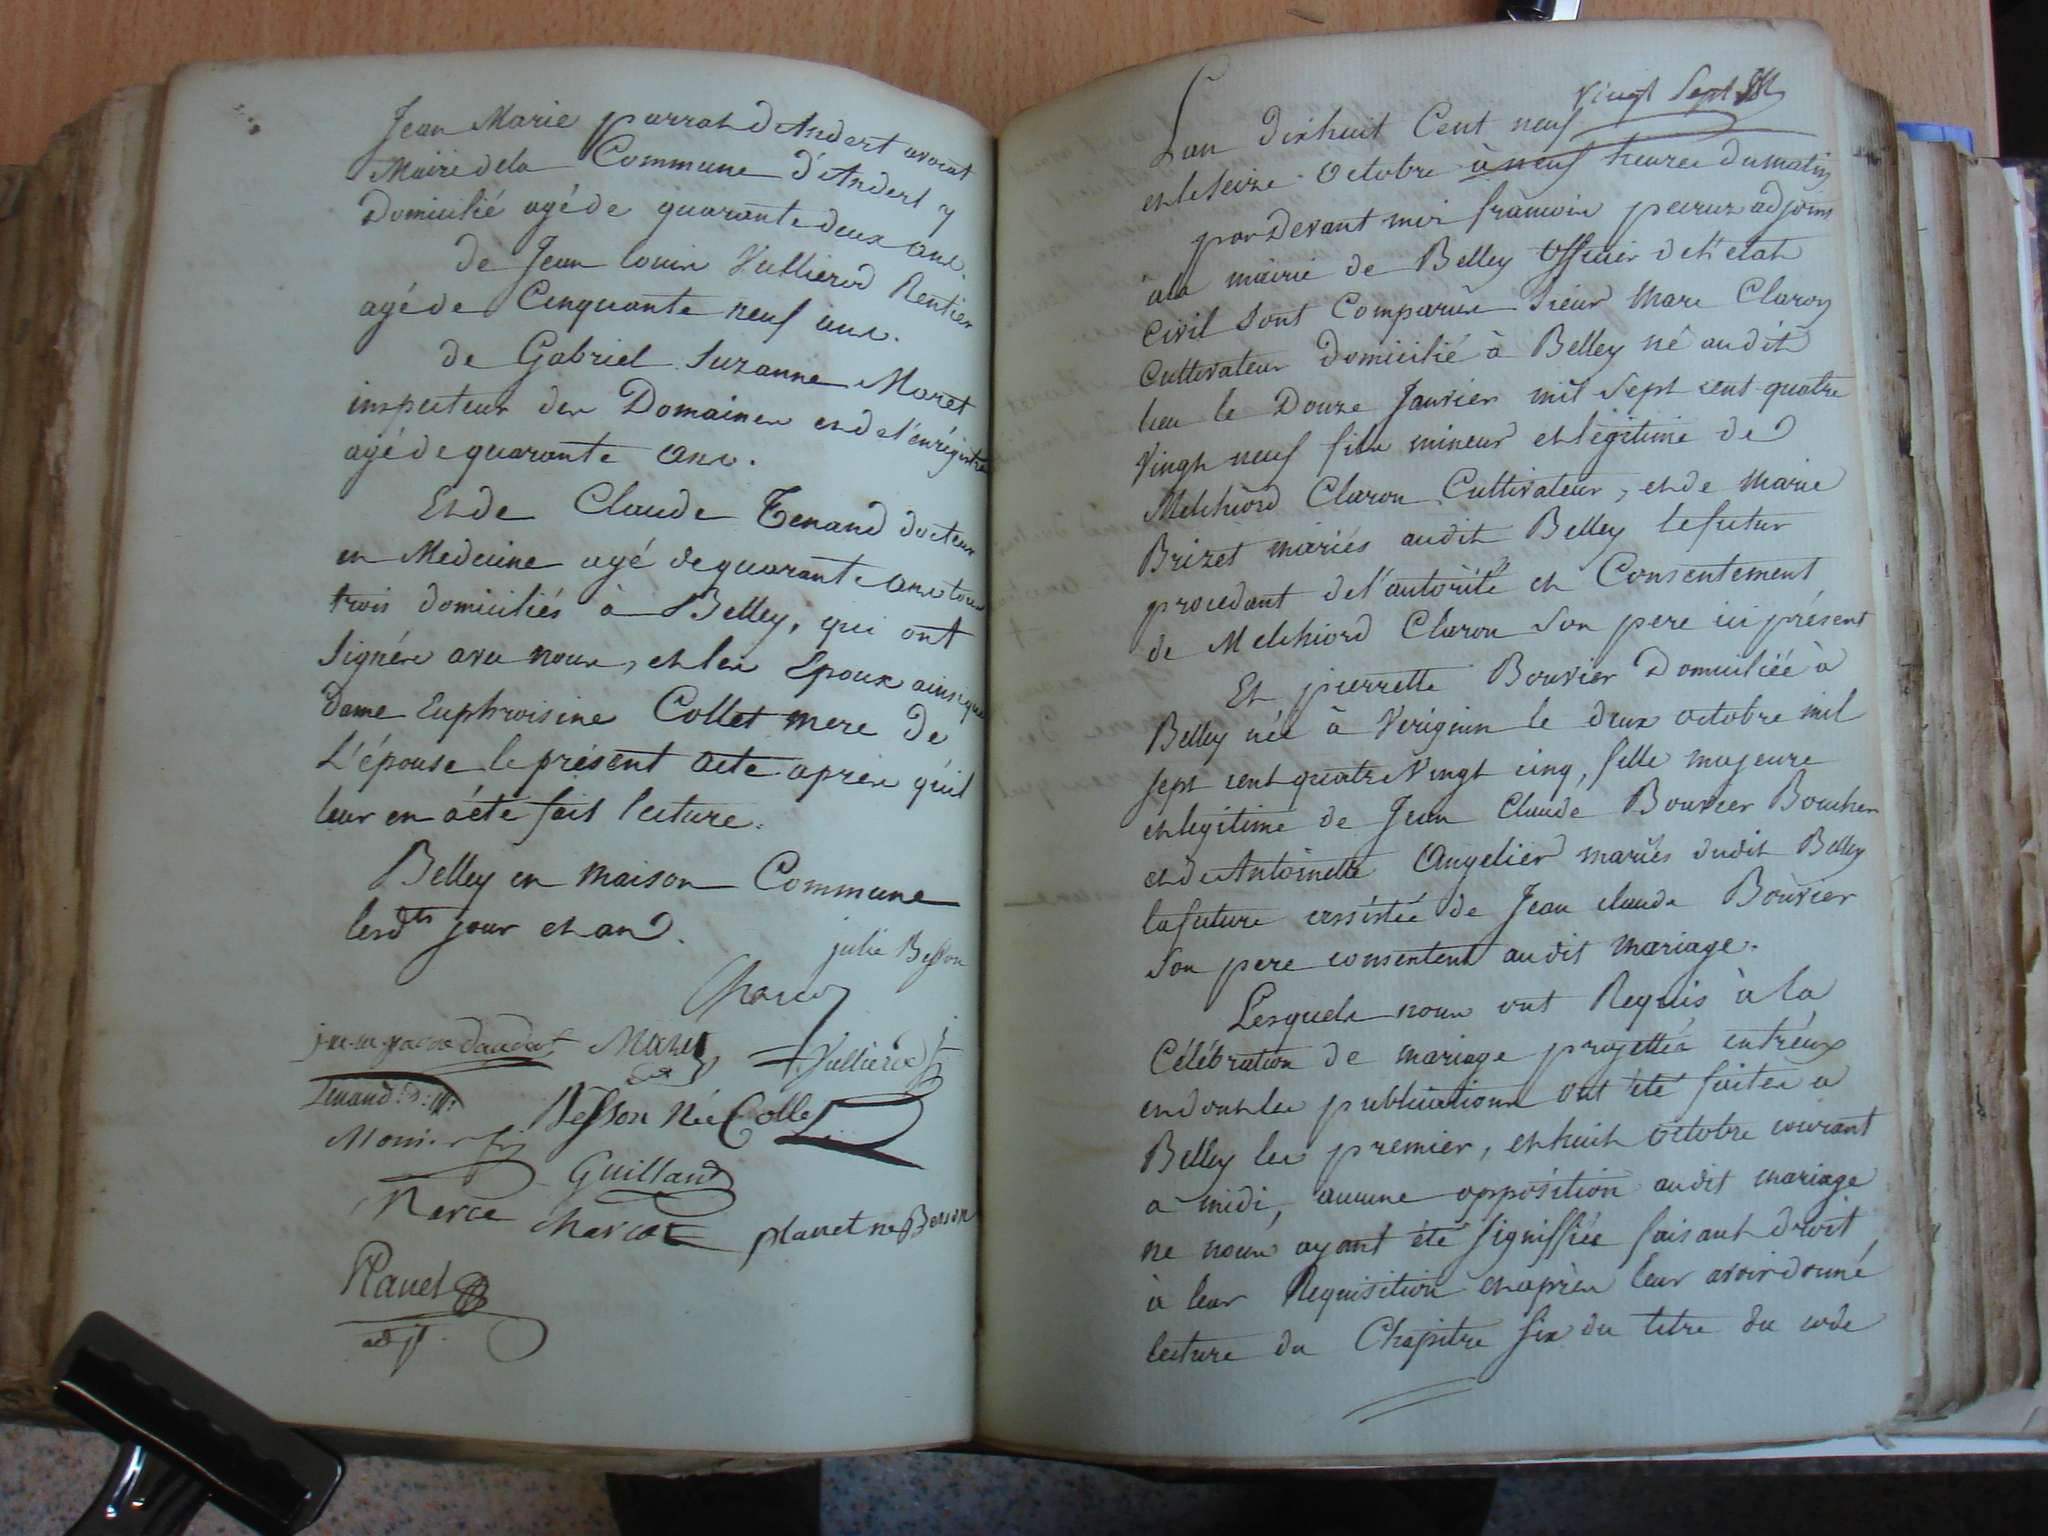 Jean Marie parrat d'Andert avocat
Maire dela Commune d'Andert y
Domicilié agé de quarante deux ans.
de Jean Louis Vullierod Rentier
agé de Cinquante neuf ans.
de Gabriel Suzanne Moret
inspecteur des Domaines et de l'enrégistre
agé de quarante ans.
Et de Claude Tenand docteur
en Medecine agé de quarante ans tous
trois domiciliés à Belley, qui ont
signés avec nous, et les Epoux ainsi que
Dame Euphroisine Collet mere de
L'épouse le présent acte après qu'il
leur en a été fait lecture.
Belley en maison Commune
lesdts jour et an.
julie Besson
Moret Vullierod
Tenand D: M:
Besson Née Collet
Monier
Guilland
Narce Marcot planet ne Besson
Planet
adjt.
Vingt Sept
L'an dixhuit Cent neuf
et le seize octobre à neuf heures du matin
par devant moi françois peiruz adjoint
à la mairie de Belley officier de l'etat
civil sont Comparus sieur Marc Claron
Cultivateur Domicilié à Belley né audit
lieu le Douze Janvier mil sept cent quatre
Vingt neuf fils mineur et légitime de
Melchiord Claron Cultivateur, et de Marie
Brizet mariés audit Belley le futur
procedant de l'autorité et Consentement
de Melchiord Claron son pere ici présent
Et pierrette Bouvier Domiciliée à
Belley née à Verignin le deux octobre mil
sept cent quatre Vingt cinq, fille majeure
et legitime de Jean Claude Bouvier Boucher
et de Antoinette Angelier mariés dudit Belley
la future assistée de Jean claude Bouvier
son pere consentent audit mariage.
Lesquels nous ont Requis à la
Célébration de mariage projettés entréux
et dont les publications ont été faites a
Belley les premier, et huit octobre courant
a midi, aucune opposition audit mariage
ne nous ayant été signiffiée faisant droit
à leur Requisition et après leur avoir donné
lecture du Chapitre six du titre du code